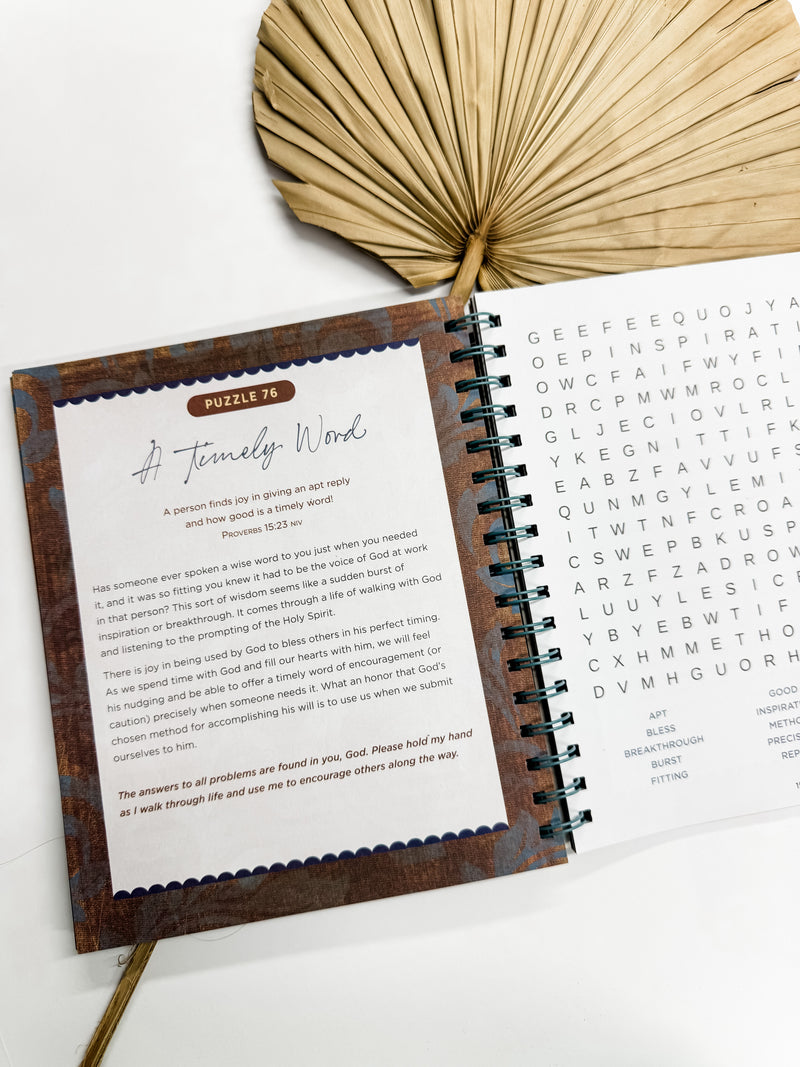 PUZZLE 76
A Timely Word
A person finds joy in giving an apt reply
and how good is a timely word!
PROVERBS 15:23 NIV
Has someone ever spoken a wise word to you just when you needed
it, and it was so fitting you knew it had to be the voice of God at work
in that person? This sort of wisdom seems like a sudden burst of
inspiration or breakthrough. It comes through a life of walking with God
and listening to the prompting of the Holy Spirit.
There is joy in being used by God to bless others in his perfect timing.
As we spend time with God and fill our hearts with him, we will feel
his nudging and be able to offer a timely word of encouragement (or
caution) precisely when someone needs it. What an honor that God's
chosen method for accomplishing his will is to use us when we submit
ourselves to him.
The answers to all problems are found in you, God. Please hold my hand
as I walk through life and use me to encourage others along the way.
G E E F E E Q U O J Y A
O E P I N S P I R A T I
O W C F A I F W Y F I
D R C P M W M R O C L
G L J E C I O V L R L
Y K E G N I T T I F K
E A B Z F A V V U F S
Q U N M G Y L E M I
I T W T N F C R O A
C S W E P B K U S P
A R Z F Z A D R O W
L U U Y L E S I C E
Y B Y E B W T I F
C X H M M E T H O
D V M H G U O R H
APT
BLESS
BREAKTHROUGH
BURST
FITTING
GOOD
INSPIRATI
METHO
PRECIS
REP